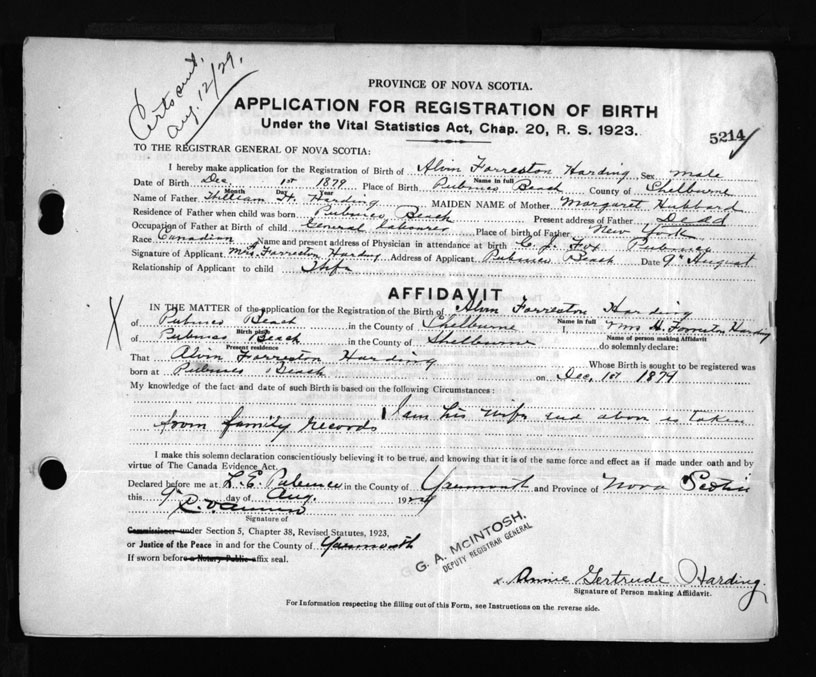 Certs sent,
Aug. 12/29.
PROVINCE OF NOVA SCOTIA.
APPLICATION FOR REGISTRATION OF BIRTH
Under the Vital Statistics Act, Chap. 20, R. S. 1923.
5214
TO THE REGISTRAR GENERAL OF NOVA SCOTIA:
I hereby make application for the Registration of Birth of Alvin Forreston Harding Sex Male
Name in full
Date of Birth Dec 1st 1879 Place of Birth Pubnico Beach County of Shelburne
Month Day Year
Name of Father William H. Harding MAIDEN NAME of Mother Margaret Hubbard
Residence of Father when child was born Pubnico Beach Present address of Father Dead
Occupation of Father at Birth of child General Labourer Place of birth of Father New York
Race Canadian Name and present address of Physician in attendance at birth C. J. Fox Pubnico
Signature of Applicant Mrs Forreston Harding Address of Applicant Pubnico Beach Date 9th August
Relationship of Applicant to child Wife
AFFIDAVIT
IN THE MATTER of the application for the Registration of the Birth of Alvin Forreston Harding
Name in full
of Pubnico Beach in the County of Shelburne I, Mrs A. Forreston Harding
Birth place Name of person making Affidavit
of Pubnico Beach in the County of Shelburne do solemnly declare:
Present residence
That Alvin Forreston Harding Whose Birth is sought to be registered was
born at Pubnico Beach on Dec, 1st 1879
My knowledge of the fact and date of such Birth is based on the following Circumstances:
I am his wife and above is taken
from family records
I make this solemn declaration conscientiously believing it to be true, and knowing that it is of the same force and effect as if made under oath and by
virtue of The Canada Evidence Act.
Declared before me at L. E. Pubnico in the County of Yarmouth and Province of Nova Scotia
this 9th day of Aug. 1929
Signature of
Commissioner under Section 5, Chapter 38, Revised Statutes, 1923,
or Justice of the Peace in and for the County of Yarmouth
If sworn before a Notary Public affix seal.
G. A. McINTOSH,
DEPUTY REGISTRAR GENERAL
x Annie Gertrude Harding
Signature of Person making Affidavit.
For Information respecting the filling out of this Form, see Instructions on the reverse side.